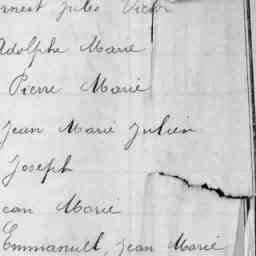 Ernest Jules Victor
Adolphe Marie
Pierre Marie
Jean Marie Julien
Joseph
ean Marie
Emmanuel, Jean Marie